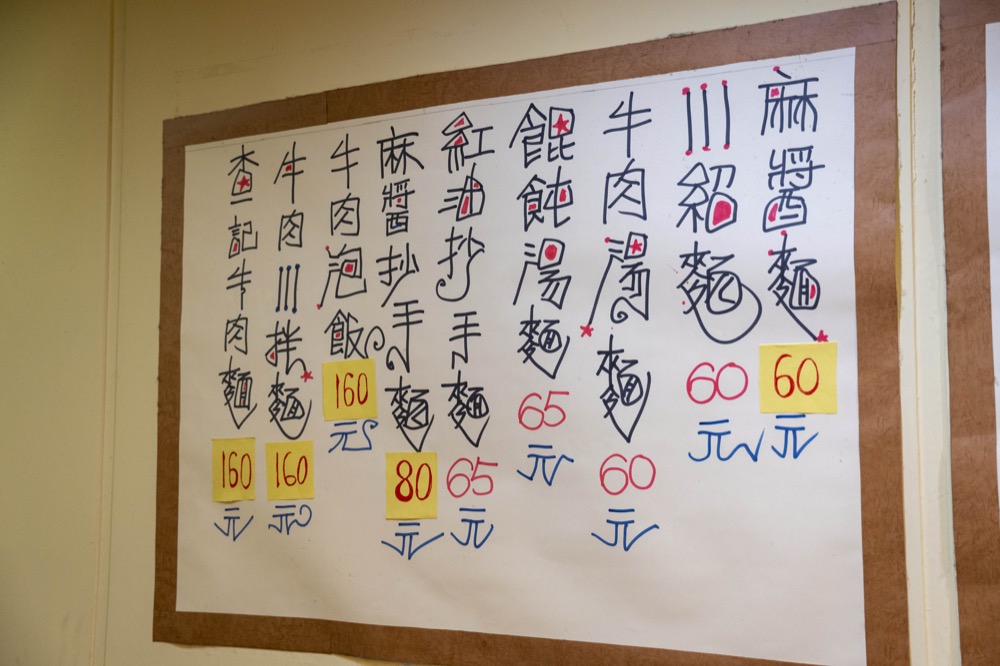 麻醬麵60元
川紹麵60元
牛肉湯麵60元
餛飩湯麵65元
紅油抄手麵65元
麻醬抄手麵80元
牛肉泡飯160元
牛肉川拌麵160元
查記牛肉麵160元